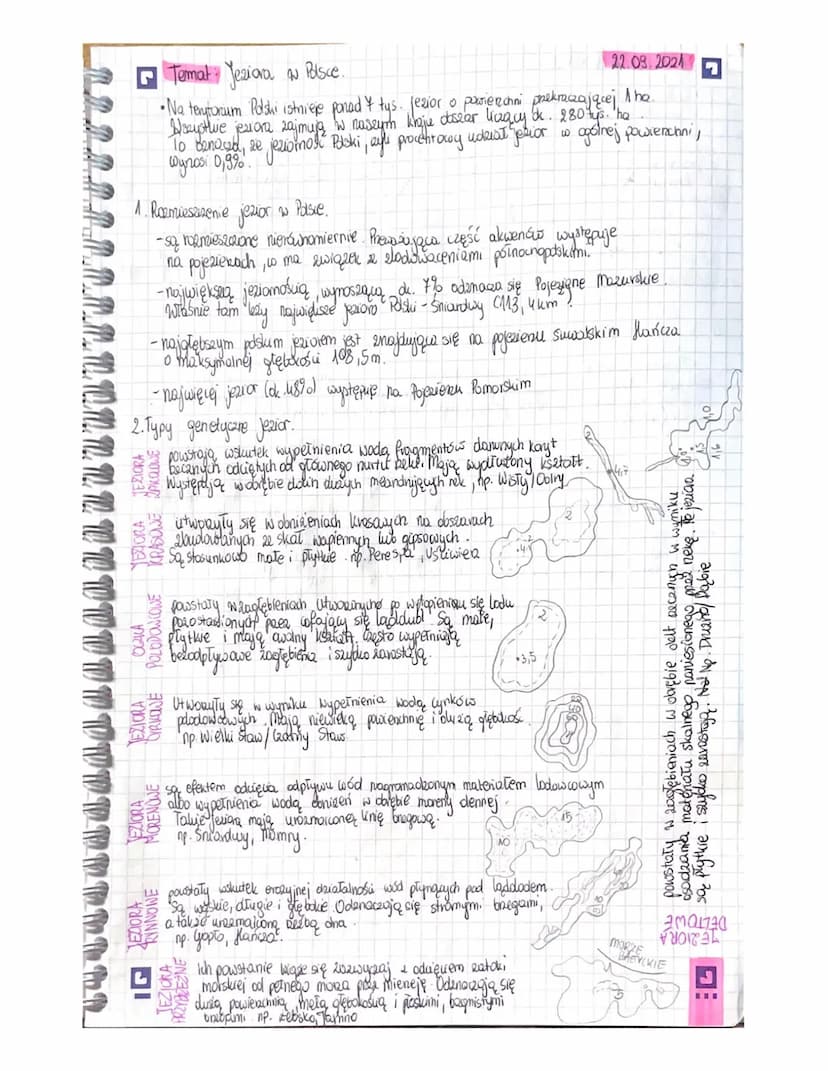 Temat: Jeziora w Polsce.
22.09.2021
• Na terytorium Polski istnieje ponad 7 tys. jezior o powierzchni przekraczającej 1 ha.
Wszystkie jeziora zajmują w naszym kraju obszar liczący ok. 280 tys. ha.
To oznacza, że jeziorność Polski, czyli procentowy udział jezior w ogólnej powierzchni,
wynosi 0,9%.
1. Rozmieszczenie jezior w Polsce.
- są rozmieszczone nierównomiernie. Przeważająca część akwenów występuje
na pojezierzach, co ma związek ze zlodowaceniami północnopolskimi.
- największą jeziornością, wynoszącą ok. 7% odznacza się Pojezierze Mazurskie.
Właśnie tam leży największe jezioro Polski - Śniardwy (113,4 km²)
- najgłębszym polskim jeziorem jest znajdujące się na pojezierzu Suwalskim Hańcza
o maksymalnej głębokości 108,5m.
- najwięcej jezior (ok. 48%) występuje na Pojezierzu Pomorskim
2. Typy genetyczne jezior.
JEZIORA
ZAKOLOWE
powstają wskutek wypełnienia wodą fragmentów dawnych koryt
rzecznych odciętych od głównego nurtu rzeki. Mają wydłużony kształt.
Występują w obrębie dolin dużych meandrujących rzek, np. Wisły/Odry
2
4,7
JEZIORA
KRASOWE
utworzyły się w obniżeniach krasowych na obszarach
zbudowanych ze skał wapiennych lub gipsowych.
Są stosunkowo małe i płytkie. np. Perespa, Uściwierz
2
2
OCZKA
POLODOWCOWE
powstały w zagłębieniach utworzonych po wytopieniu się lodu
pozostawionych przez cofający się lądolód. Są małe,
płytkie i mają owalny kształt. Często wypełniają
bezodpływowe zagłębienia i szybko zarastają.
2
•3,5
JEZIORA
CYRKOWE
Utworzyły się w wyniku wypełnienia wodą cyrków
polodowcowych. Mają niewielką powierzchnię i dużą głębokość.
np Wielki Staw/Czarny Staw
JEZIORA
MORENOWE
są efektem odcięcia odpływu wód nagromadzonym materiałem lodowcowym
albo wypełnienia wodą obniżeń w obrębie moreny dennej.
Takie jeziora mają urozmaiconą linię brzegową.
np. Śniardwy, Mamry.
10
15
JEZIORA
RYNNOWE
powstały wskutek erozyjnej działalności wód płynących pod lądolodem.
Są wąskie, długie i głębokie. Odznaczają się stromymi brzegami,
a także urozmaiconą rzeźbą dna.
np. Gopło, Hańcza.
JEZIORA
PRZYBRZEŻNE
Ich powstanie wiąże się zazwyczaj z odcięciem zatoki
morskiej od pełnego morza przez mierzeję. Odznaczają się
dużą powierzchnią, małą głębokością i płaskimi, bagnistymi
brzegami np. Łebsko, Jamno
MORZE
BAŁTYCKIE
5
JEZIORA
DELTOWE
powstały w zagłębieniach w obrębie delt rzecznych w wyniku
osadzania materiału skalnego naniesionego przez rzekę. Te jeziora
są płytkie i szybko zarastają. Np. Druzno/Dąbie
1,0
1,5
1,6